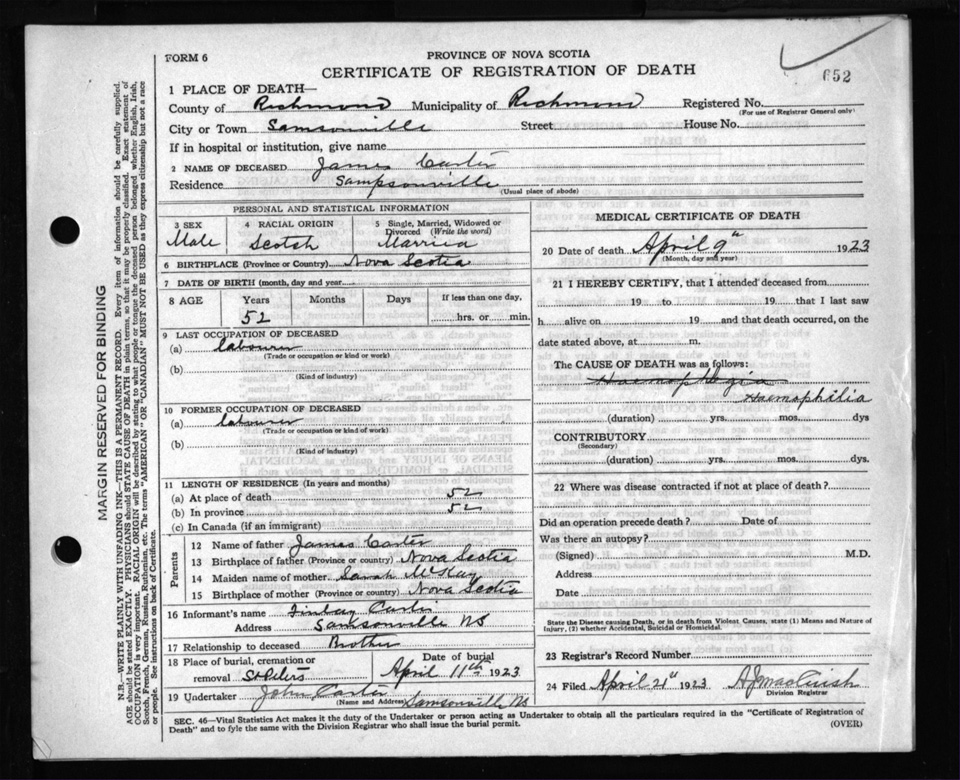 FORM 6
PROVINCE OF NOVA SCOTIA
CERTIFICATE OF REGISTRATION OF DEATH
652
1 PLACE OF DEATH—
County of Richmond Municipality of Richmond Registered No.
(For use of Registrar General only)
City or Town Samsonville Street House No.
If in hospital or institution, give name
2 NAME OF DECEASED James Carter
Residence Sampsonville
(Usual place of abode)
PERSONAL AND STATISTICAL INFORMATION
3 SEX Male
4 RACIAL ORIGIN Scotch
5 Single, Married, Widowed or Divorced (Write the word) Married
6 BIRTHPLACE (Province or Country) Nova Scotia
7 DATE OF BIRTH (month, day and year)
8 AGE Years Months Days If less than one day,
52 hrs. or min.
9 LAST OCCUPATION OF DECEASED
(a) labourer
(Trade or occupation or kind or work)
(b)
(Kind of industry)
10 FORMER OCCUPATION OF DECEASED
(a) labourer
(Trade or occupation or kind of work)
(b)
(Kind of industry)
11 LENGTH OF RESIDENCE (In years and months)
(a) At place of death 52
(b) In province 52
(c) In Canada (if an immigrant)
Parents
12 Name of father James Carter
13 Birthplace of father (Province or country) Nova Scotia
14 Maiden name of mother Sarah McKay
15 Birthplace of mother (Province or country) Nova Scotia
16 Informant's name Finlay Carter
Address Samsonville NS
17 Relationship to deceased Brother
18 Place of burial, cremation or removal St Peters
Date of burial April 11th 1923
19 Undertaker John Carter Samsonville NS
(Name and Address)
MEDICAL CERTIFICATE OF DEATH
20 Date of death April 9th 1923
(Month, day and year)
21 I HEREBY CERTIFY, that I attended deceased from
19 to 19 that I last saw
h alive on 19 and that death occurred, on
date stated above, at m.
The CAUSE OF DEATH was as follows:
Haemophlegia
Haemophilia
(duration) yrs. mos. dys
CONTRIBUTORY
(Secondary)
(duration) yrs. mos. dys.
22 Where was disease contracted if not at place of death?
Did an operation precede death? Date of
Was there an autopsy?
(Signed) M.D.
Address
Date
State the Disease causing Death, or in death from Violent Causes, state (1) Means and Nature of Injury, (2) whether Accidental, Suicidal or Homicidal.
23 Registrar's Record Number
24 Filed April 21st 1923
Division Registrar
SEC. 46—Vital Statistics Act makes it the duty of the Undertaker or person acting as Undertaker to obtain all the particulars required in the "Certificate of Registration of
Death" and to fyle the same with the Division Registrar who shall issue the burial permit.
(OVER)
MARGIN RESERVED FOR BINDING
N.B.—WRITE PLAINLY WITH UNFADING INK—THIS IS A PERMANENT RECORD. Every item of information should be carefully supplied.
AGE should be stated EXACTLY. PHYSICIANS should STATE CAUSE OF DEATH in plain terms, so that it may be properly classified. Exact statement of
OCCUPATION is very important. RACIAL ORIGIN will be described by stating to what people or tongue the deceased person belonged whether English, Irish,
Scotch, French, German, Russian, Ruthenian, etc. The terms "AMERICAN" OR "CANADIAN" MUST NOT BE USED as they express citizenship but not a race
or people. See instructions on back of Certificate.